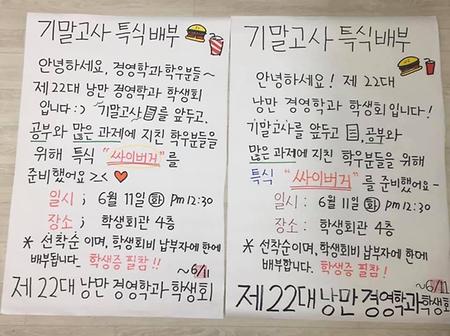 기말고사 특식배부
안녕하세요, 경영학과 학우분들~
제 22대 낭만 경영학과 학생회
입니다 :) 기말고사를 앞두고,
공부와 많은 과제에 지친 학우분들을
위해 특식 "싸이버거"를
준비했어요 ><
일시 ; 6월 11일 (화) PM 12:30
장소 ; 학생회관 4층
* 선착순이며, 학생회비 납부자에 한해
배부됩니다. 학생증 필참!!
~6/11
제 22대 낭만 경영학과 학생회
기말고사 특식배부
안녕하세요! 제 22대
낭만 경영학과 학생회입니다!
기말고사를 앞두고, 공부와
많은 과제에 지친 학우분들을 위해
특식 "싸이버거"를 준비했어요~
일시 : 6월 11일 (화) PM 12:30
장소 : 학생회관 4층
* 선착순이며, 학생회비 납부자에 한해
배부합니다. 학생증 필참!
~6/11
제 22대 낭만 경영학과 학생회